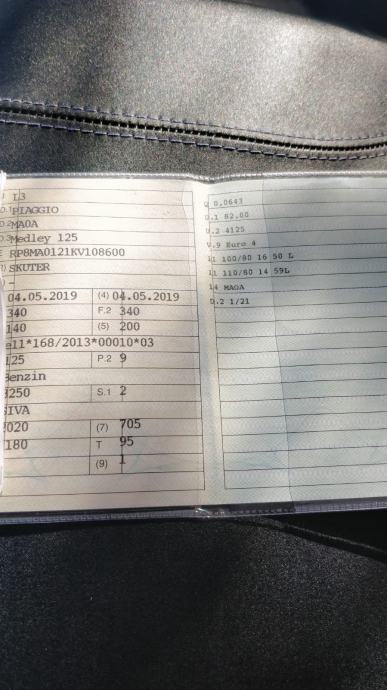 L3
PIAGGIO
MA0A
Medley 125
RP8MA0121KV108600
SKUTER
-
04.05.2019 (4) 04.05.2019
340 F.2 340
140 (5) 200
e11*168/2013*00010*03
125 P.2 9
Benzin
8250 S.1 2
SIVA
2020 (7) 705
1180 T 95
(9) 1
Q 0,0643
U.1 82,00
U.2 4125
V.9 Euro 4
11 100/80 16 50 L
11 110/80 14 59L
14 MA0A
D.2 1/21